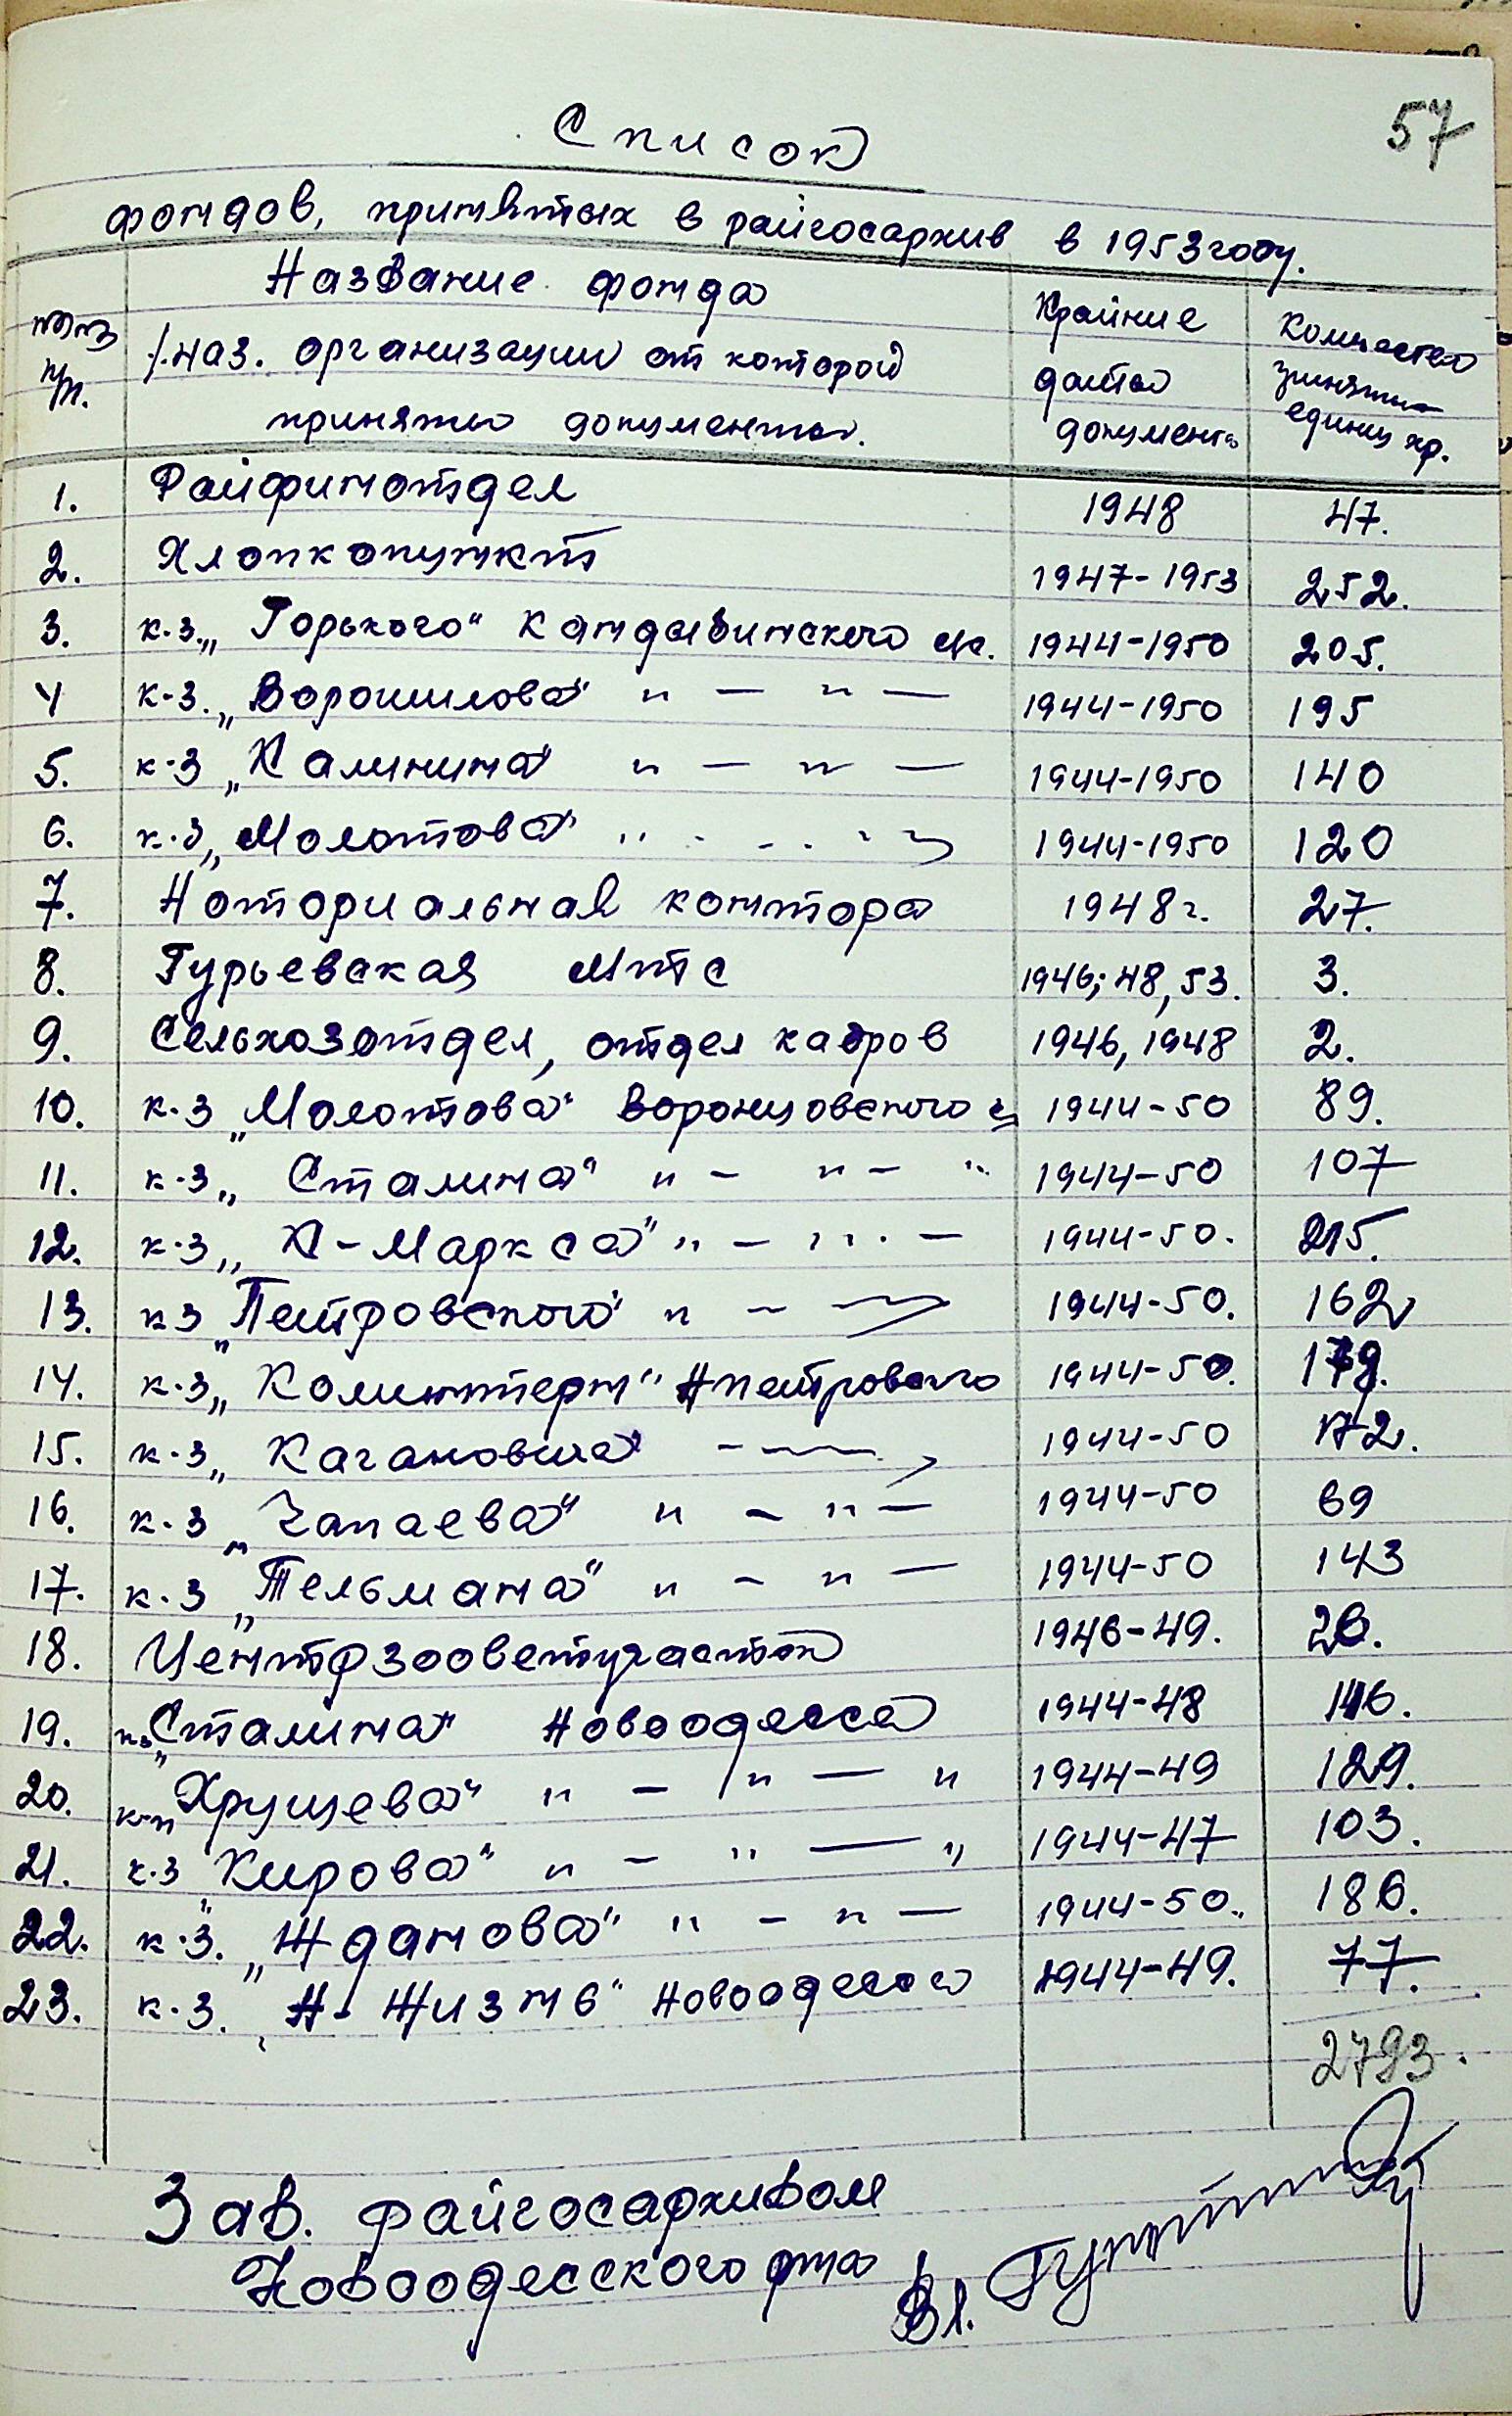 57
Список
фондов, принятых в райгосархив в 1953 году.
№№ п/п. Название фонда /наз. организации от которой приняты документы. Крайние даты документа Количество единиц хр.
1. Райфинотдел 1948 47.
2. Хлопкопункт 1947-1953 252.
3. к.з. „Горького" Кандыбинского с/с. 1944-1950 205.
4 к-з. „Ворошилова" " — " — 1944-1950 195
5. к-з „Калинина" " — " — 1944-1950 140
6. к-з „Молотова" 1944-1950 120
7. Нотариальная контора 1948 г. 27.
8. Гурьевская МТС 1946; 48, 53. 3.
9. Сельхозотдел, отдел кадров 1946, 1948 2.
10. к-з „Молотова" Воронцовского 1944-50 89.
11. к-з „Сталина" " - " - " 1944-50 107
12. к-з „К-Маркса" " - " - 1944-50. 215.
13. кз „Петровского" " - 1944-50. 162
14. к-з „Коминтерн" Нпетровского 1944-50. 179.
15. к-з „Кагановича" 1944-50 172.
16. к-з „Чапаева" " - " - 1944-50 69
17. к-з „Тельмана" " - " - 1944-50 143
18. Центрзооветучасток 1946-49. 26.
19. „Сталина" Новоодесса 1944-48 146.
20. „Хрущева" " - " — " 1944-49 129.
21. к-з „Кирова" " - " — " 1944-47 103.
22. к-з. „Жданова" " - " - 1944-50. 186.
23. к-з. „Н-Жизнь" Новоодесса 1944-49. 77.
2793.
Зав. райгосархивом
Новоодесского р-на Вл.